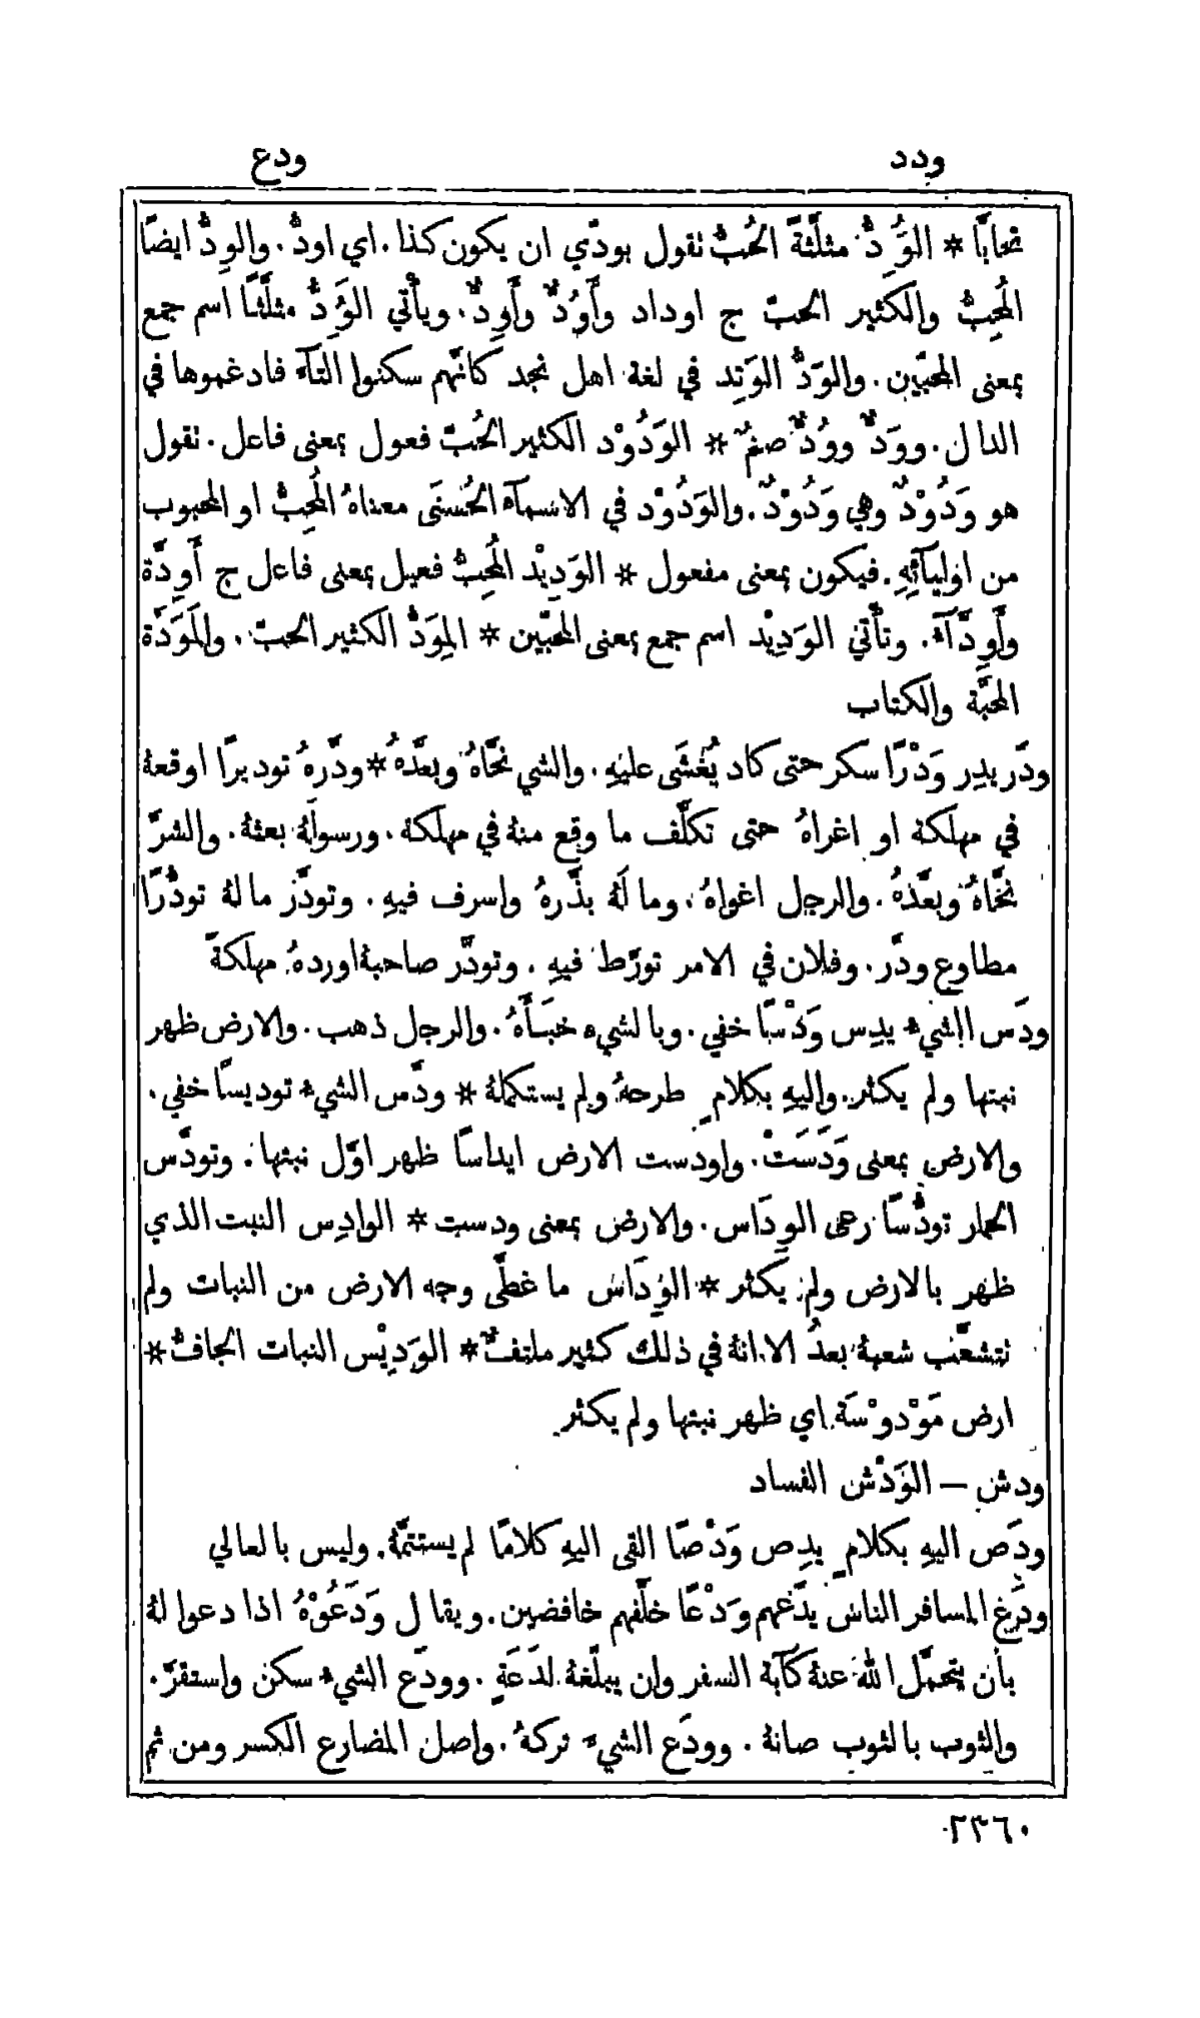 ودد
ودع
تحابًّا * الوَُِدُّ مثلَّثةً الحُبُّ تقول بودّي ان يكون كذا. اي اودُّ. والوِدُّ ايضًا
المُحِبُّ والكثير الحبّ ج اوداد وأَوُدٌّ وأَوِدٌّ. ويأْتي الوَُِدُّ مثلَّثًا اسم جمع
بمعنى المحبّين. والوَدُّ الوَتِد في لغة اهل نجد كانَّهم سكنوا التآء فادغموها في
الدال. ووَدٌّ ووُدٌّ صنمٌ * الوَدُوْد الكثير الحُبّ فعول بمعنى فاعل. تقول
هو وَدُوْدٌ وهي وَدُوْدٌ. والوَدُوْد في الاسمآء الحُسْنَى معناهُ المُحِبُّ او المحبوب
من اوليآئِهِ. فيكون بمعنى مفعول * الوَدِيْد المُحِبُّ فعيل بمعنى فاعل ج أَوِدَّة
وأَوِدَّآء. وتأْتي الوَدِيْد اسم جمع بمعنى المحبّين * المِوَدُّ الكثير الحبّ. والمَوَدَّة
المحبَّة والكتاب
ودَر يدِر وَدْرًا سكر حتى كاد يُغْشَى عليهِ. والشي نحَّاهُ وبعَّدهُ * ودَّرهُ توديرًا اوقعهُ
في مهلكة او اغراهُ حتى تكلَّف ما وقع منهُ في مهلكة. ورسولَهُ بعثهُ. والشرَّ
نحَّاهُ وبعَّدهُ. والرجل اغواهُ. ومالَهُ بذَّرهُ واسرف فيهِ. وتودَّر مالهُ تودُّرًا
مطاوع ودَّر. وفلان في الامر تورَّط فيهِ. وتودَّر صاحبهُ اوردهُ مهلكةً
ودَس الشيء يدِس وَدْسًا خفي. وبالشيء خبَأَهُ. والرجل ذهب. والارض ظهر
نبتها ولم يكثر. واليهِ بكلامٍ طرحهُ ولم يستكملهُ * ودَّس الشيء توديسًا خفي.
والارض بمعنى وَدَسَتْ. واودست الارض ايداسًا ظهر اوَّل نبتها. وتودَّس
الحمار تودُّسًا رعى الودَاس. والارض بمعنى ودست * الوادِس النبت الذي
ظهر بالارض ولم يكثر * الوِدَاس ما غطَّى وجه الارض من النبات ولم
تتشعَّب شعبهُ بعدُ الا انهُ في ذلك كثير ملتفٌّ * الوَدِيْس النبات الجافُّ *
ارض مَوْدوْسَة اي ظهر نبتها ولم يكثر
ودش — الوَدْش الفساد
ودَص اليهِ بكلامٍ يدِص وَدْصًا القى اليهِ كلامًا لم يستتمَّهُ. وليس بالعالي
ودَع المسافر الناس يدَعهم وَدْعًا خلَّفهم خافضين. ويقال وَدَعُوْهُ اذا دعوا لهُ
بأن يتحمَّل اللّٰه عنهُ كآبة السفر وان يبلّغهُ لدَعَةٍ. وودَع الشيء سكن واستقرَّ.
والثوب بالثوب صانهُ. وودَع الشيء تركهُ. واصل المضارع الكسر ومن ثم
٢٣٦٠